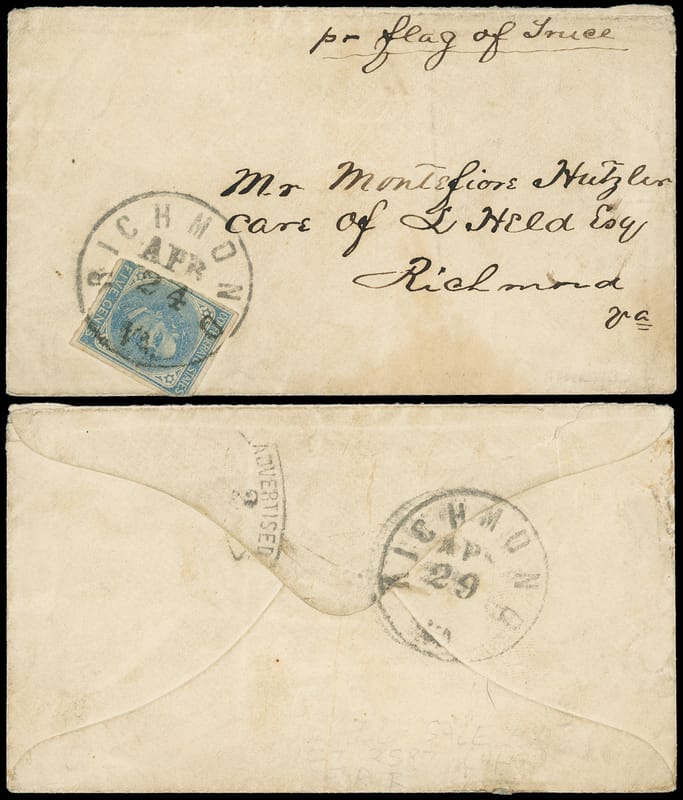 pr flag of Truce
Mr Montefiore Hutzler
care of L Held Esq
Richmond
va
RICHMOND
APR
24
VA.
FIVE CENTS
STATES
ADVERTISED
RICHMOND
APR
29
SALE